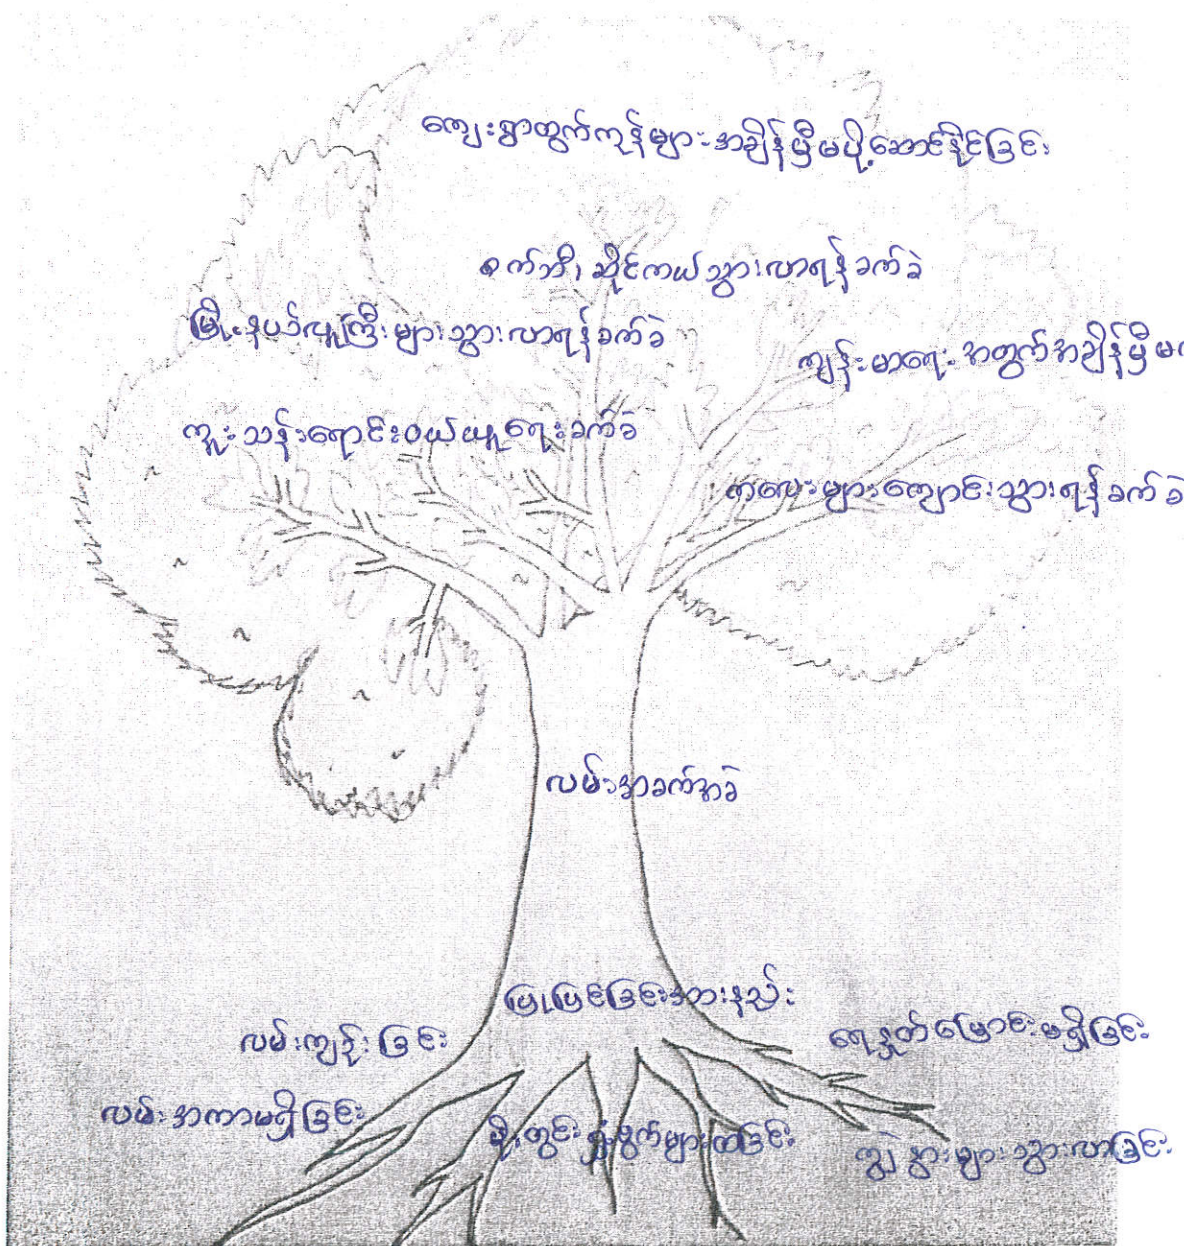 ကျေးရွာထွက်ကုန်များအချိန်မှီမပို့ဆောင်နိုင်ခြင်း
စက်ဘီး ဆိုင်ကယ်သွားလာရန်ခက်ခဲ
မြို့နယ်လူကြီးများသွားလာရန်ခက်ခဲ
ကျန်းမာရေးအတွက်အချိန်မှီမ
ကူးသန်းရောင်းဝယ်ယူရေးခက်ခဲ
ကလေးများကျောင်းသွားရန်ခက်ခဲ
လမ်းအခက်အခဲ
ပြုပြင်ခြင်းအားနည်း
လမ်းကျဉ်းခြင်း
ရေနုတ်မြောင်းမရှိခြင်း
လမ်းအကာမရှိခြင်း
မိုးတွင်းရွှံ့ဗွက်များထခြင်း
ကျွဲနွားများသွားလာခြင်း